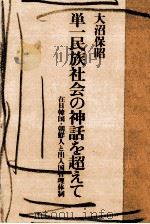 大沼保昭
単一民族社会の神話を超えて
在日韓国・朝鮮人と出入国管理体制